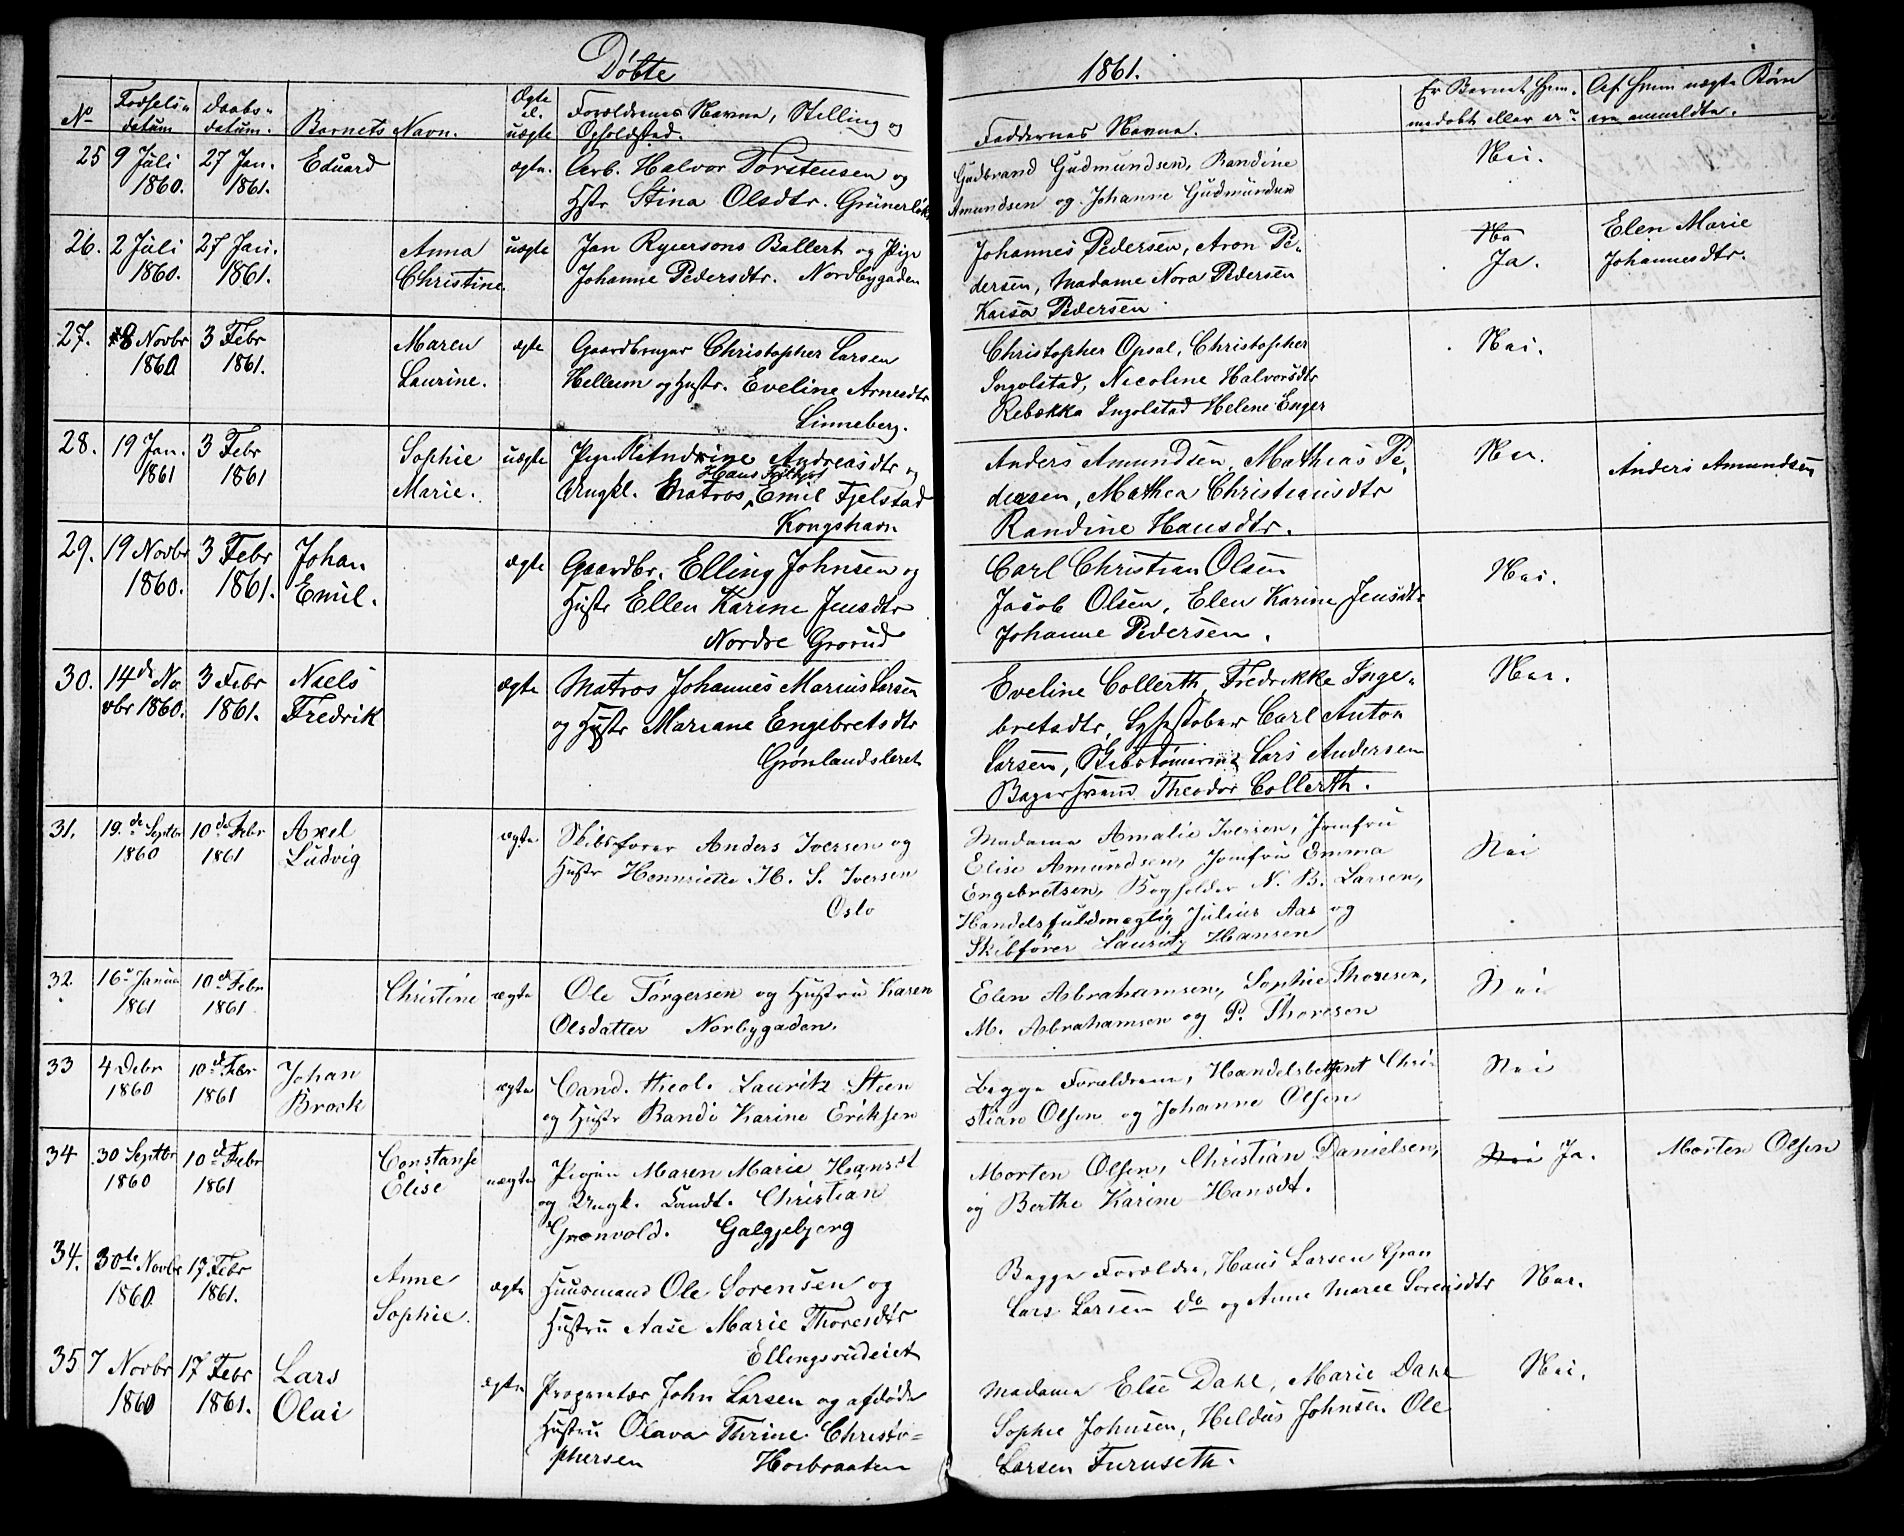 Døbte
1861.
No
Fødsels-
datum
Daabs-
datum.
Barnets Navn.
Ægte
el.
uægte
Forældrenes Navne, Stilling og
Opholdsted.
Faddernes Navne.
Er Barnet hjem-
medøbt eller ei?
Af hvem uægte Børn
ere anmeldte.
25 9 Juli 27 Jan. Eduard ægte. Arb. Halvor Torstensen og Gudbrand Gudmundsen, Randine Nei.
1860. 1861. Hstr Stina Olsdtr. Grünerløk Amundsen og Johanne Gudmundsen
26. 2 Juli 27 Jan. Anna uægte Jan Ryersons Ballert og Pige Johannes Pedersen, Aron Pe- Na Elen Marie
1860. 1861. Christine Johanne Pedersdtr. Nordbygaden dersen, Madame Nora Pedersen Ja. Johannesdtr.
Kaisa Pedersen
27. 8 Novbr 3 Febr Maren ægte Gaardbruger Christopher Larsen Christopher Opsal, Christopher Nei.
1860 1861. Laurine. Hellum og Hustr. Eveline Arnesdtr Ingolstad, Nicoline Halvorsdtr
Linneberg. Rebekka Ingolstad Helene Enger
28. 19 Jan. 3 Febr Sophie uægte Pige Andreasdtr og Anders Amundsen, Mathias Pe- Nei. Anders Amundsen
1861 1861 Marie. Ungkl. Matros, Hans Emil Fjelstad dersen, Mathea Christiansdtr
Kongshavn Randine Hansdtr.
29. 19 Novbr 3 Febr Johan ægte Gaardbr. Elling Johnsen og Carl Christian Olsen Nei.
1860. 1861. Emil. Hustr Ellen Karine Jensdtr Jacob Olsen, Elen Karine Jensdtr
Nordre Grorud Johanne Pedersen.
30. 14de No- 3 Febr Niels ægte Matros Johannes Marius Larsen Eveline Collerth, Fredrikke Inge- Nei.
vbr 1860. 1861. Fredrik og Hustr Mariane Engebretsdtr bretsdtr, Carl Anton
Grønlandsleret Larsen, Lars Andersen
Bagersvend Theodor Collerth.
31. 19.de Septbr 10de Febr Axel ægte Skibsfører Anders Iversen og Madame Amalie Iversen, Jomfru Nei
1860 1861 Ludvig Hustr Hennriette H. S. Iversen Elise Amundsen, Jomfru Emma
Oslo Engebretsen, Bogholder N. B. Larsen,
Handelsfuldmægtig Julius Aas og
Skibfører Lauritz Hansen
32. 16de Januar 10de Febr Christine ægte Ole Torgersen og Hustru Karen Elen Abrahamsen, Sophie Thoresen, Nei
1861 1861 Olsdatter Norbygaden. M. Abrahamsen og P. Thoresen
33 4 Debr 10de Febr Johan ægte Cand. theol. Lauritz Steen Begge Forældrene, Handelsbetjent Chri- Nei
1860 1861 Brock og Hustr Bandi Karine Eriksen stian Olsen og Johanne Olsen
34 30 Septbr 10de Febr Constanse uægte Pigen Maren Marie Hansdt Morten Olsen, Christian Danielsen, Nei Ja. Morten Olsen
1860 1861 Elise og Ungk. Landt. Christian og Berthe Karine Hansdt.
Grønvold. Galgjebjerg
34. 30te Novbr 17 Febr Anne ægte Huusmand Ole Sorensen og Begge Forældre, Hans Larsen Gran Nei.
1860 1861. Sophie. Hustru Aase Marie Thoresdtr Lars Larsen do og Anne Marie Sorensdtr
Ellingsrudeiet
35 7 Novbr 17 Febr Lars ægte Proprietær John Larsen og afdøde Madame Else Dahl, Marie Dahl Nei.
1860 1861. Olai Hustru Olava Thrine Christo- Sophie Johnsen, Heldus Johnsen Ole
phersen Høibraaten Larsen Furuseth.